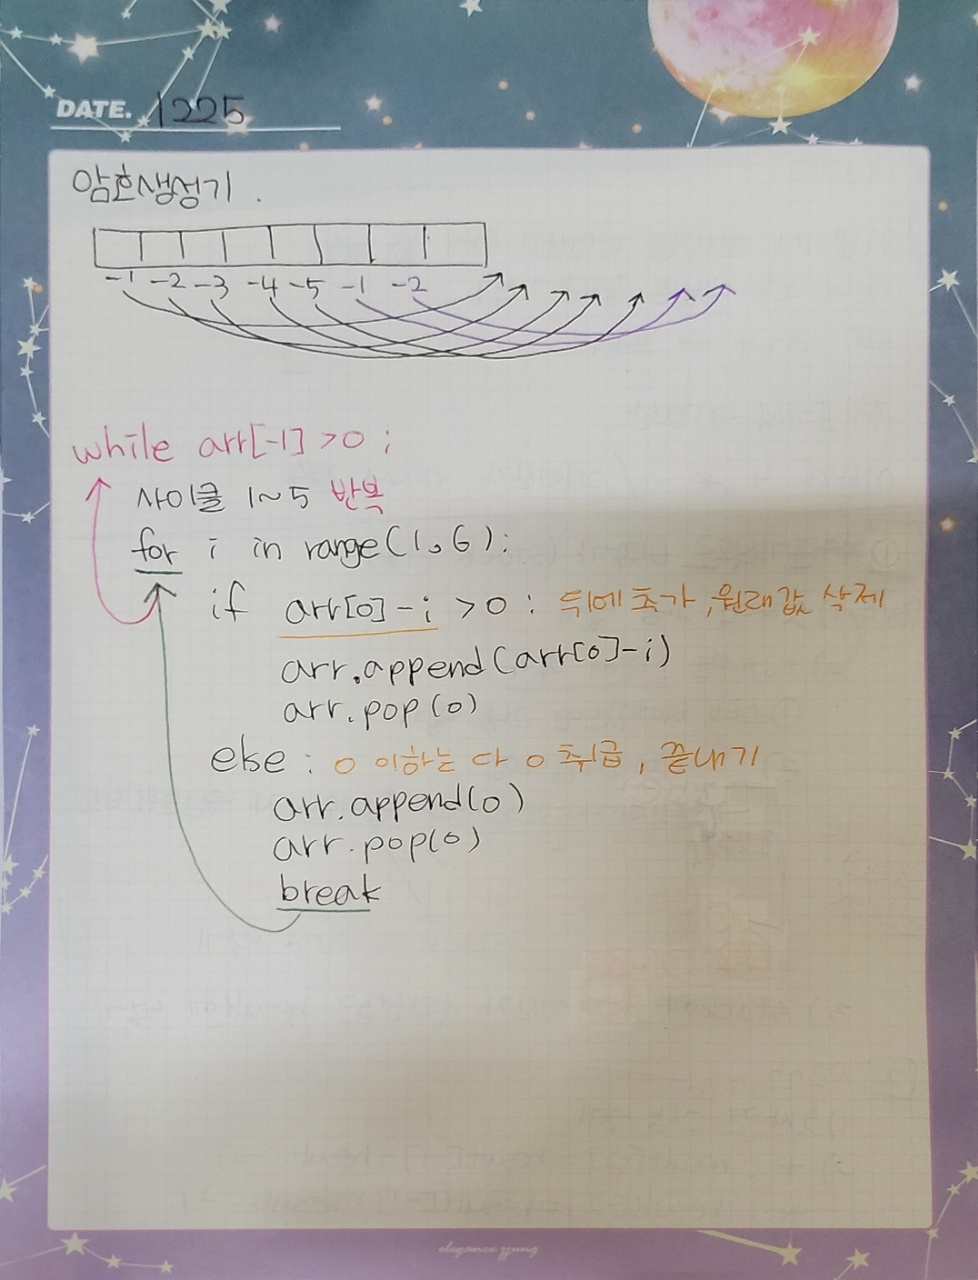 DATE. 1225
암호생성기.
-1 -2 -3 -4 -5 -1 -2
while arr[-1] >0 ;
사이클 1~5 반복
for i in range(1,6):
if arr[0]-i >0 : 뒤에 추가, 원래값 삭제
arr.append(arr[0]-i)
arr.pop(0)
else : 0 이하는 다 0 취급, 끝내기
arr.append(0)
arr.pop(0)
break